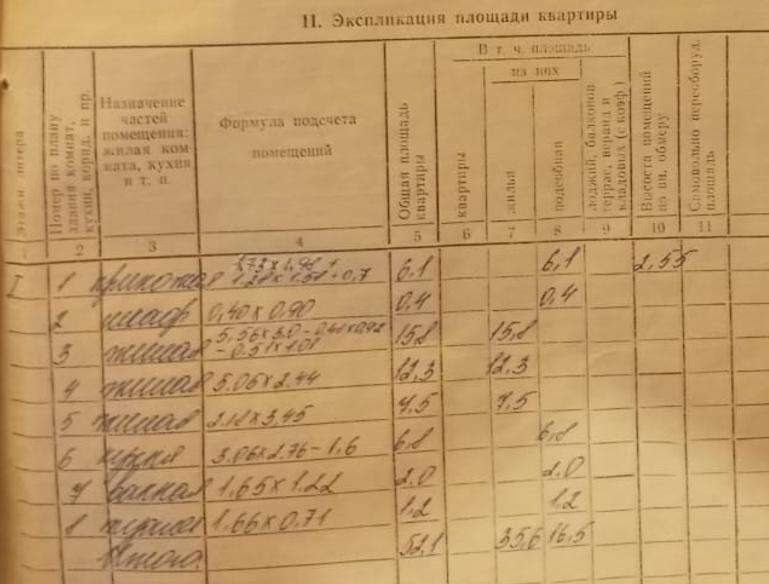 II. Экспликация площади квартиры
Этажи, литера
Номер по плану здания комнат, кухни, корид. и пр.
Назначение частей помещения: жилая комната, кухня и т. п.
Формула подсчета помещений
Общая площадь квартиры
В т. ч. площадь
из них
квартиры
жилья
подсобная
лоджий, балконов террас, веранд и кладовых (с коэф.)
Высота помещений по вн. обмеру
Самовольно переоборуд. площадь
2 3 4 5 6 7 8 9 10 11
I 1 прихожая 1.73 x 1.98 + 1.28 x 1.58 + 0,7 6.1 6,1 2,55
2 шкаф 0,40 x 0.90 0,4 0,4
3 жилая 5.56 x 3.0 - 0.40 x 0.98 - 0.51 x 1.01 15.8 15,8
4 жилая 5.05 x 2.44 12,3 12.3
5 жилая 2.18 x 3.45 7.5 7.5
6 кухня 3.06 x 2.76 - 1.6 6.8 6,8
7 ванная 1.65 x 1.22 2.0 2.0
8 туалет 1.66 x 0.71 1.2 1.2
Итого 52,1 35,6 16,5